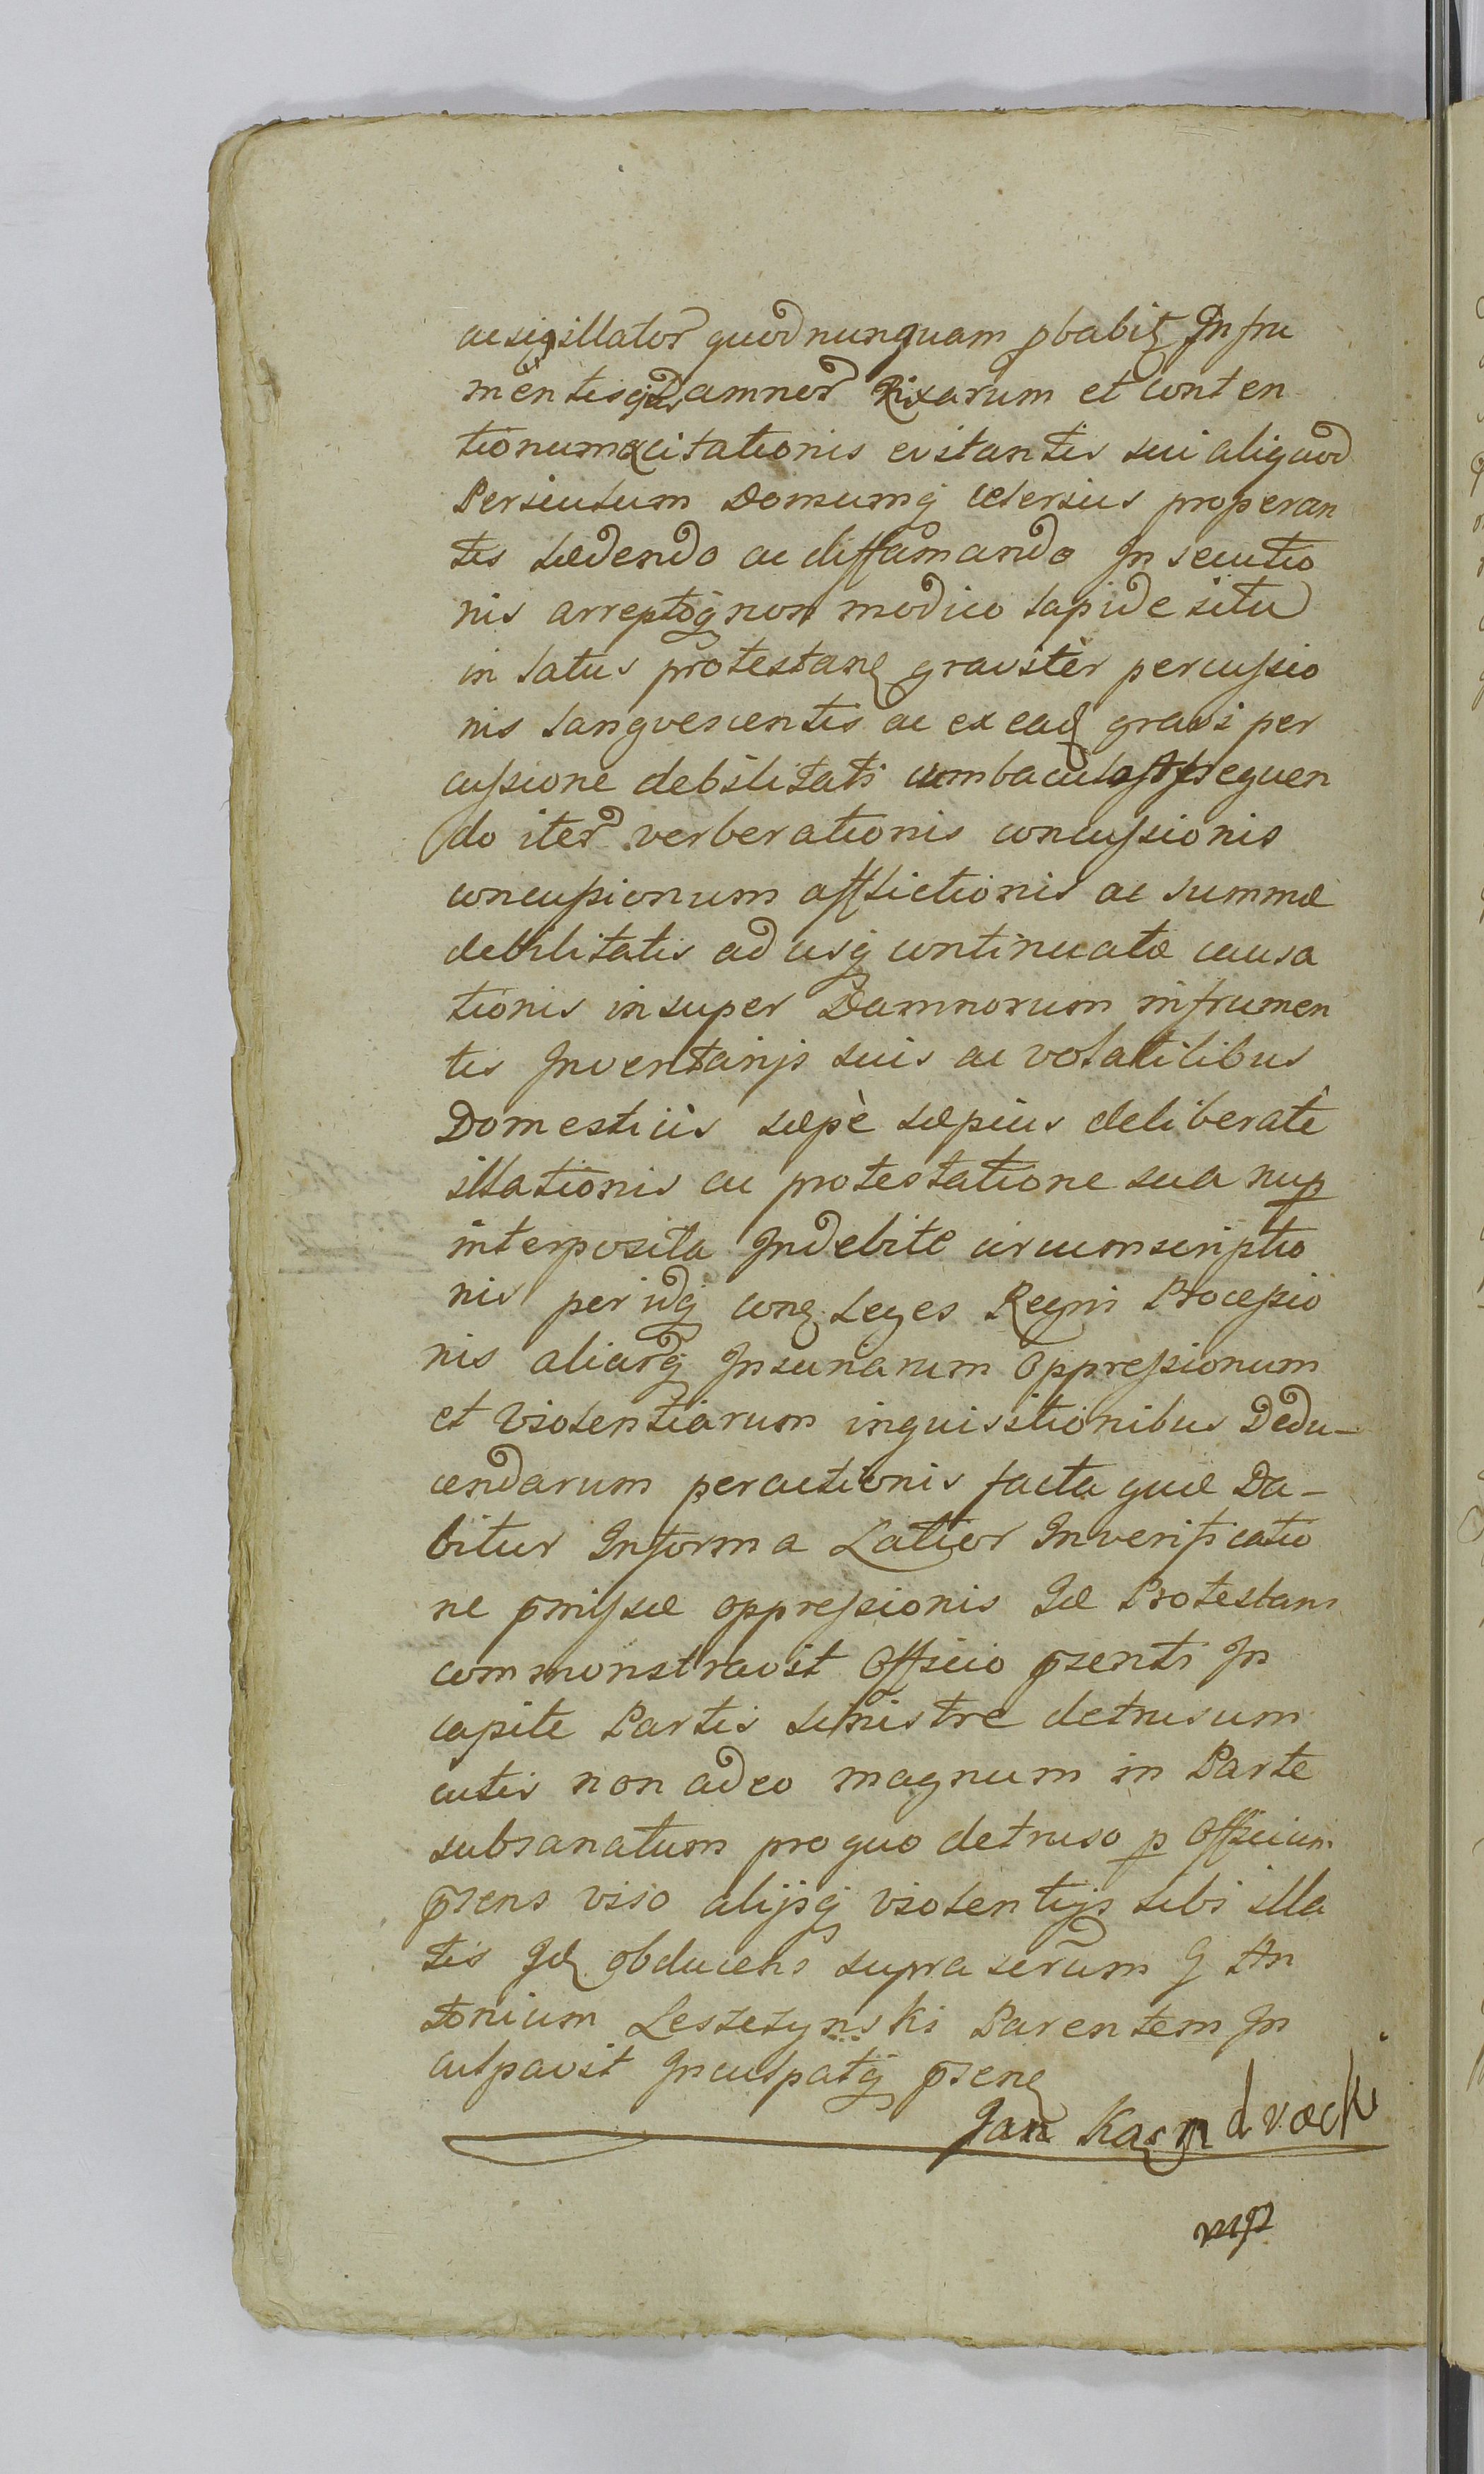 ac sigillator quod nunquam pbabit In fru
mentisq Damnor Rixarum et conten
tionum excitationis evitantis sui aliquod
Persecutum Domumq celerius properan
tis lædendo ac diffamando Insecutio
nis arreptoq non modico lapide ictu
in latus protestans graviter percussio
nis languescentis ac ex ead gravi per
cussione debilitati cum baculo assequen
do iter verberationis concussionis
concussionum afflictionis ac summæ
debilitatis ad usq continuatæ causa
tionis insuper Damnorum in frumen
tis Inventarijs suis ac volatilibus
Domesticis sæpè sæpius deliberatè
illationis ac protestatione sua nup
interposita Indebitè circumscriptio
nis per idq con Leges Regni Processio
nis aliarq Injuriarum Oppressionum
et Violentiarum inquisitionibus Dedu-
cendarum peractionis facta quæ Da-
bitur In forma Latior In verificatio
ne pmissæ oppressionis Id Protestans
commonstravit Officio psenti In
capite Partis sinistre detrusum
cutis non adeo magnum in Parte
subsanatum pro quo detruso p Officium
psens viso alijsq violentijs sibi illa
tis Id obducens supra scrum G An
tonium Leszczynski Parentem In
culpavit Inculpatq psens
Jan
mp